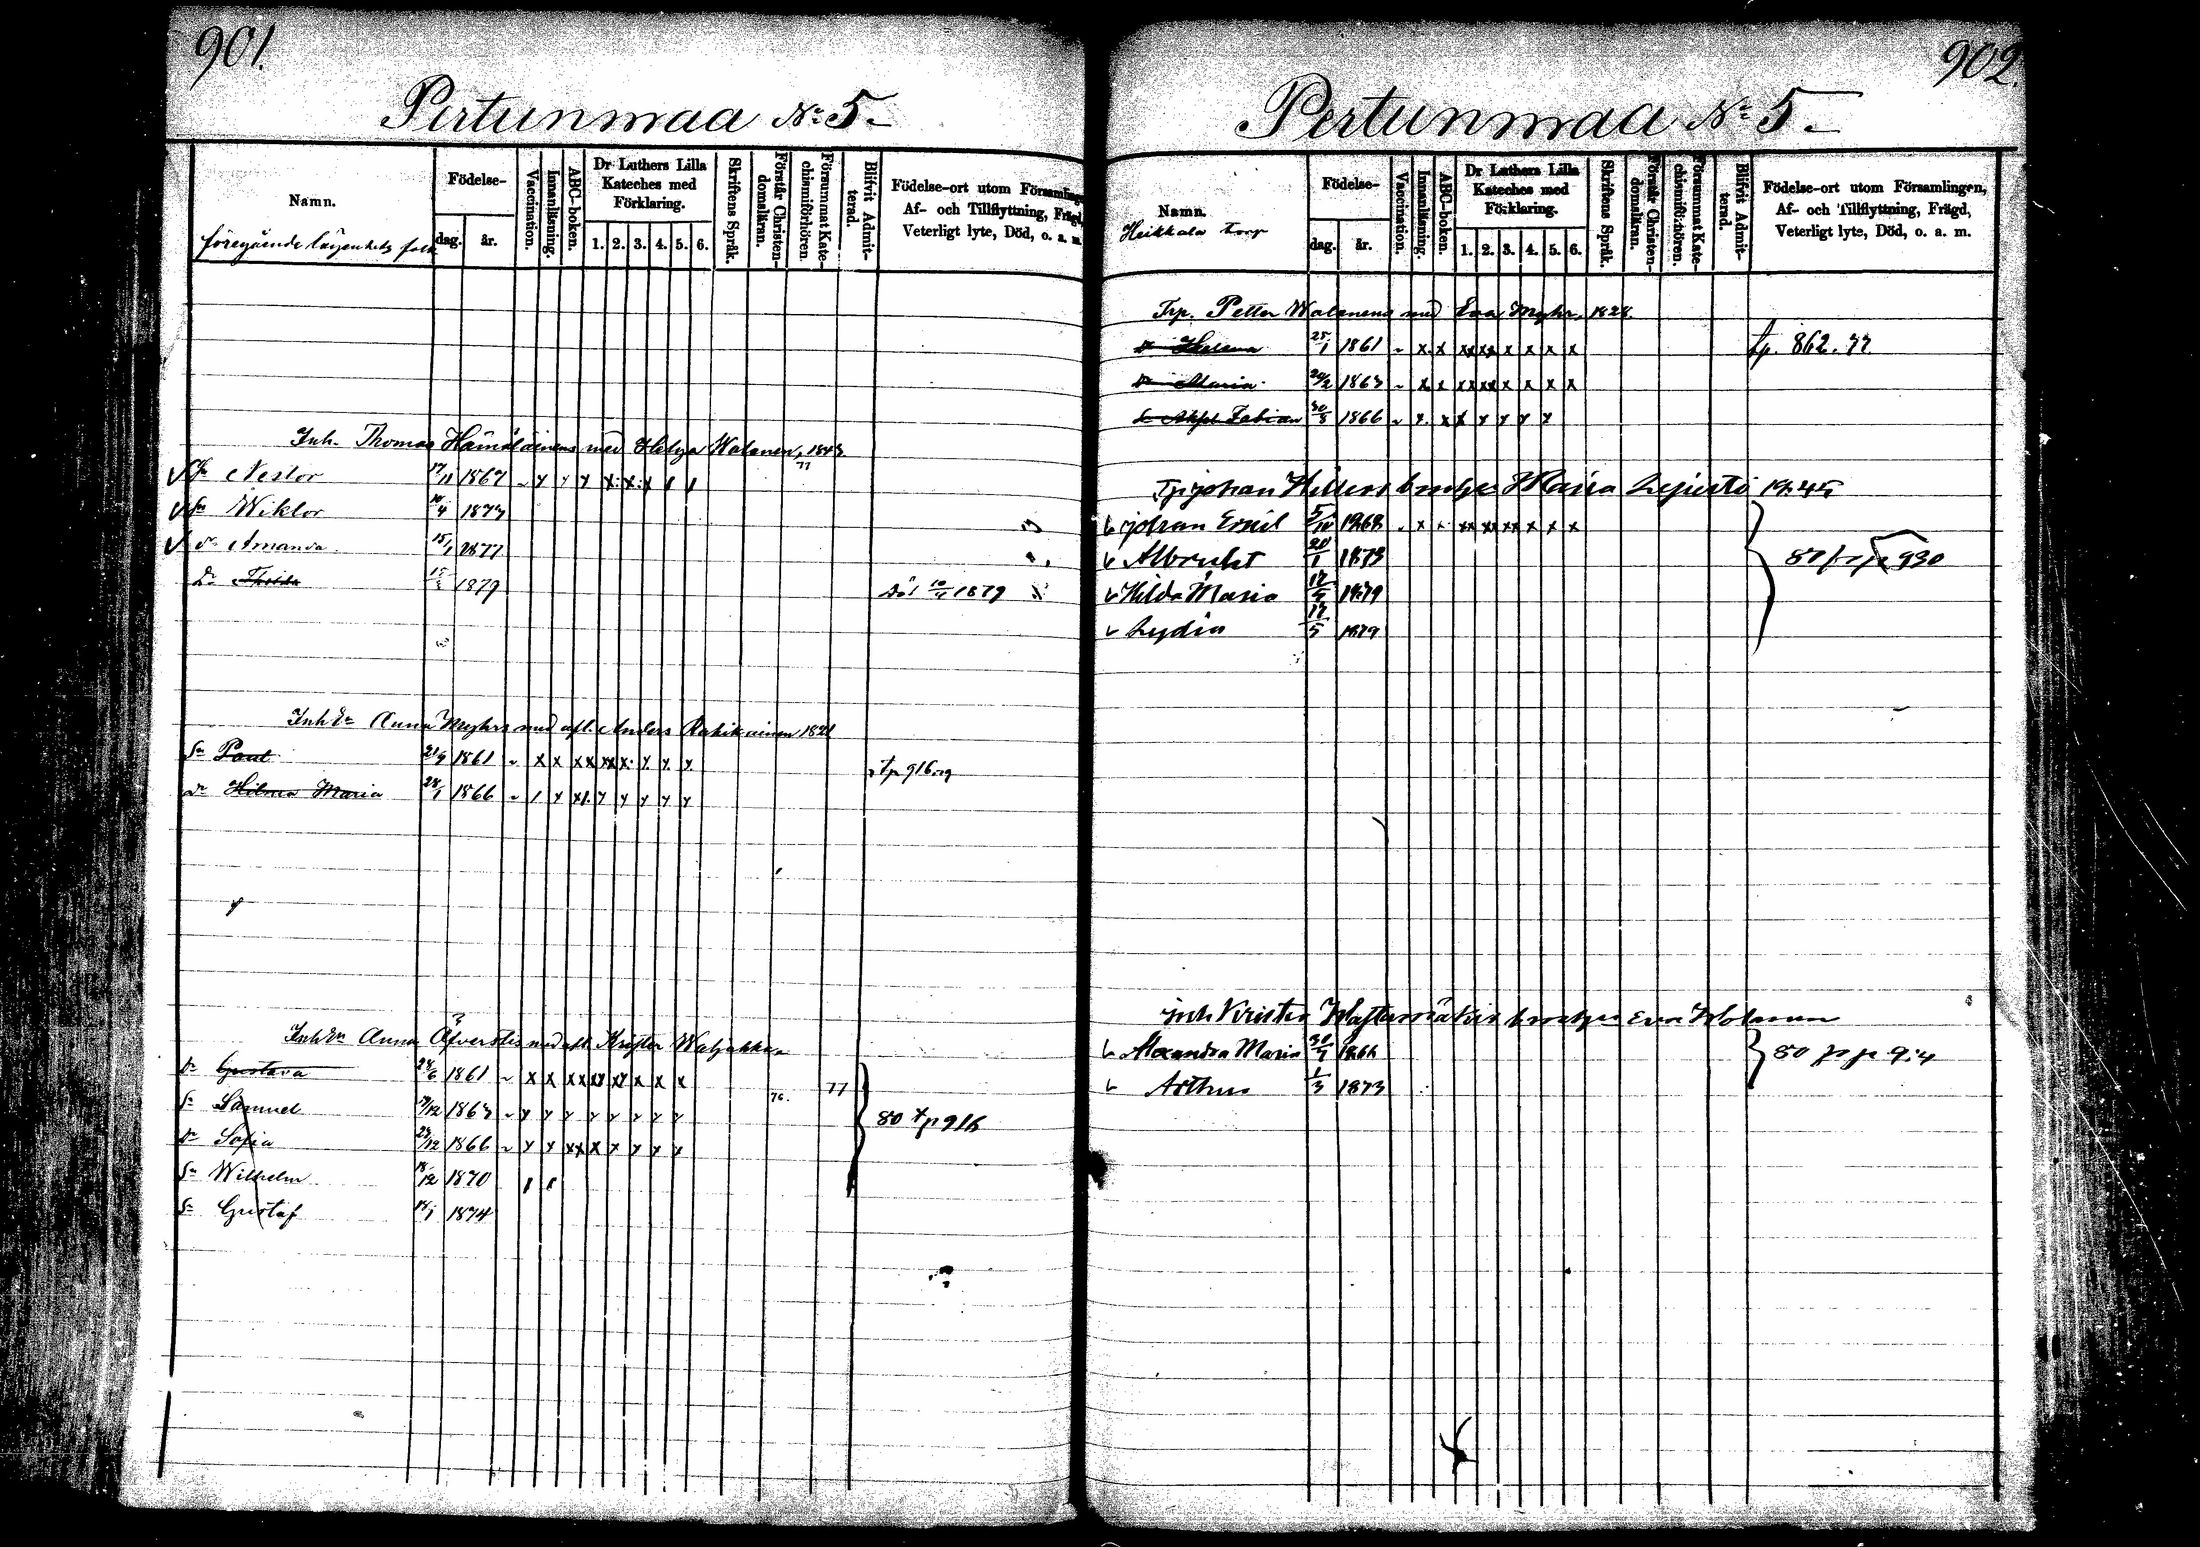 901.
Pertunmaa No 5.
Namn.
föregående lägenhets folk
Födelse-
dag. år.
Vaccination.
Innanläsning.
ABC-boken.
Dr Luthers Lilla Kateches med Förklaring.
1. 2. 3. 4. 5. 6.
Skriftens Språk.
Förstår Christendomsläran.
Försummat Katechismiförhören.
Blifvit Admitterad.
Födelse-ort utom Församlingen,
Af- och Tillflyttning, Frägd,
Veterligt lyte, Död, o. a. m.
Inh. Thomas Hämäläinens med Helga Walanen, 1843.
77
Sn Nestor 17/11 1867
Sn Wiktor 10/4 1873
Dr Amanda 15/1 1877
Dr 15/3 1879 Död 10/4 1879
Inh Ea Anna Myhrs med afl. Anders Rahikainen 1821
Sn Paul 21/9 1861 tp 916.79
Dr Hilma Maria 28/1 1866
Inh Ea Anna Äfverstis med afl. Krister
Dr Gustava 24/6 1861 77
Sn Samuel 9/12 1863 76.
Dr Sofia 29/12 1866 80 tp 916
Sn Wilhelm 18/12 1870
Sn Gustaf 15/1 1874
902.
Pertunmaa No 5.
Namn.
Heikkala Torp
Födelse-
dag. år.
Vaccination.
Innanläsning.
ABC-boken.
Dr Luthers Lilla Kateches med Förklaring.
1. 2. 3. 4. 5. 6.
Skriftens Språk.
Förstår Christendomsläran.
Försummat Katechismiförhören.
Blifvit Admitterad.
Födelse-ort utom Församlingen,
Af- och Tillflyttning, Frägd,
Veterligt lyte, Död, o. a. m.
Trp. Petter Walanens med Eva Myhr, 1828.
Dr Helena 25/1 1861 tp. 862.77
Dr Maria 24/2 1863
Sn Fabian 30/8 1866
Tp Johan Maria 1845
Johan Emil 5/10 1868
Albrecht 20/1 1873 930
Hilda Maria 17/5 1879
Lydia 17/5 1879
Inh Krister Eva
Alexandra Maria 30/7 1866 80
Arthur 1/3 1873